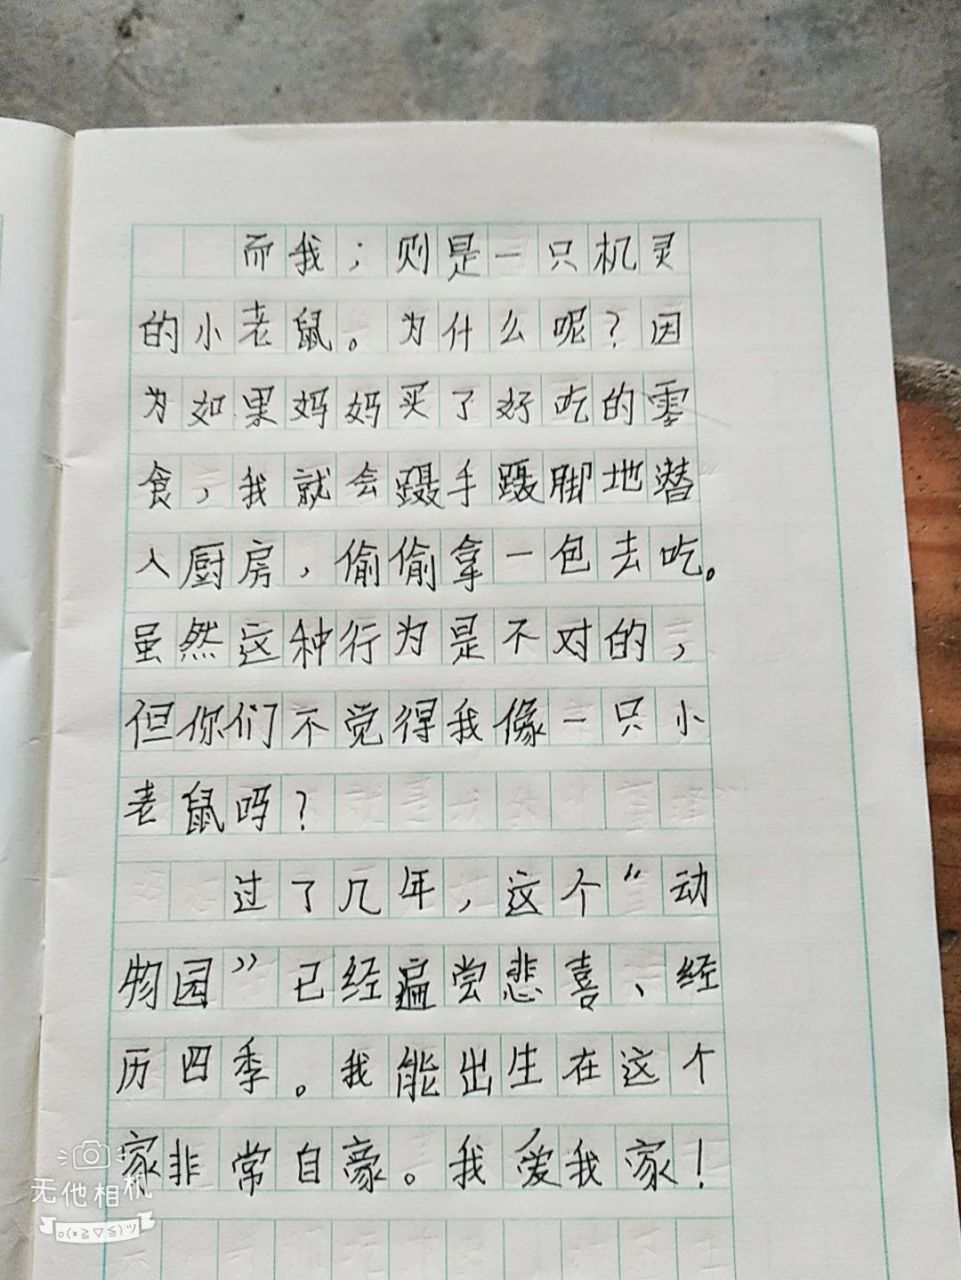 而我；则是一只机灵
的小老鼠。为什么呢？因
为如果妈妈买了好吃的零
食，我就会蹑手蹑脚地潜
入厨房，偷偷拿一包去吃。
虽然这种行为是不对的，
但你们不觉得我像一只小
老鼠吗？
过了几年，这个“动
物园”已经遍尝悲喜、经
历四季。我能出生在这个
家非常自豪。我爱我家！
无他相机
o(≧▽≦)ツ